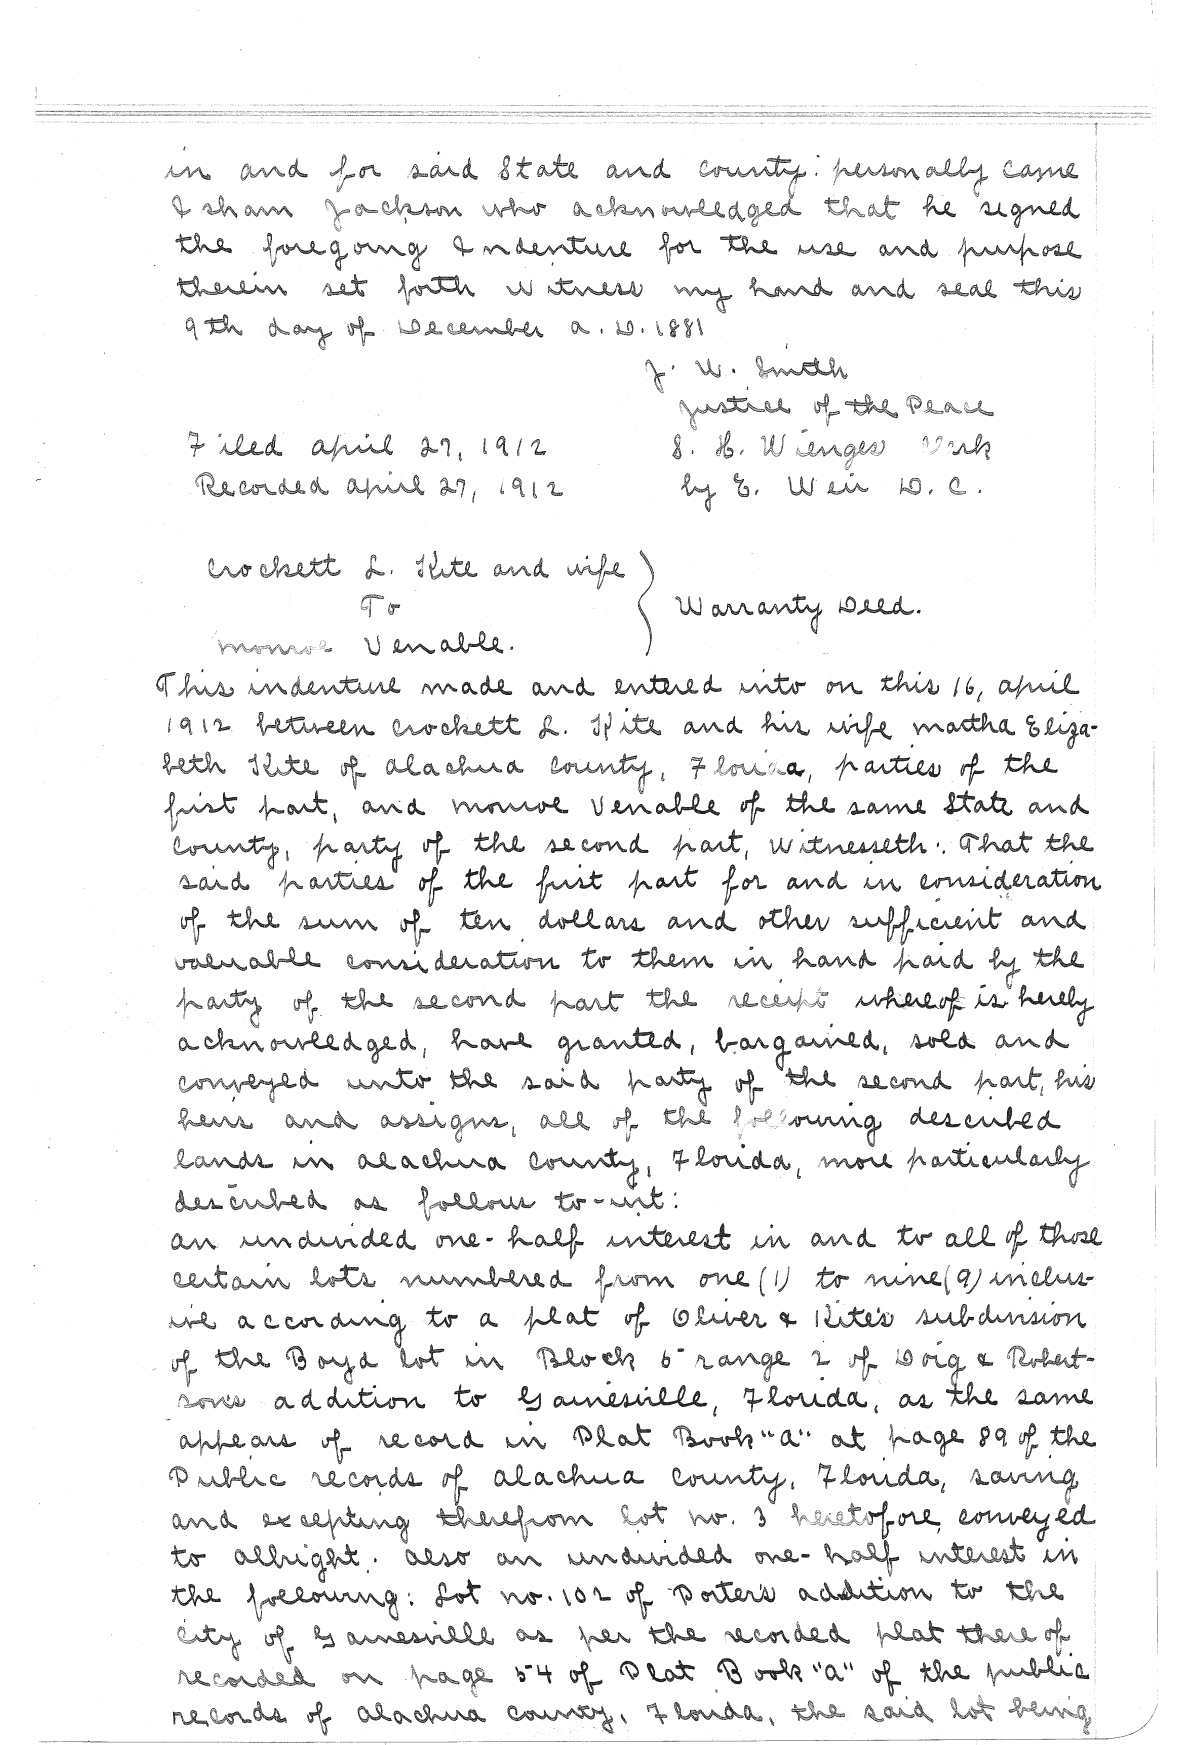 in and for said State and county: personally came
Isham Jackson who acknowledged that he signed
the foregoing Indenture for the use and purpose
therein set forth Witness my hand and seal this
9th day of December a. D. 1881
J. W. Smith
Justice of the Peace
Filed april 27, 1912 S. H. Wienges Clerk
Recorded april 27, 1912 by E. Weir D. C.
Crockett L. Kite and wife
To } Warranty Deed.
Monroe Venable.
This indenture made and entered into on this 16, april
1912 between Crockett L. Kite and his wife Martha Eliza-
beth Kite of Alachua County, Florida, parties of the
first part, and Monroe Venable of the same State and
County, party of the second part, Witnesseth: That the
said parties of the first part for and in consideration
of the sum of ten dollars and other sufficient and
valuable consideration to them in hand paid by the
party of the second part the receipt whereof is hereby
acknowledged, have granted, bargained, sold and
conveyed unto the said party of the second part, his
heirs and assigns, all of the following described
lands in Alachua County, Florida, more particularly
described as follows to-wit:
an undivided one-half interest in and to all of those
certain lots numbered from one (1) to nine (9) inclus-
ive according to a plat of Oliver & Kite's subdivision
of the Boyd lot in Block 5 range 2 of Doig & Robert-
sons addition to Gainesville, Florida, as the same
appears of record in Plat Book "A" at page 89 of the
Public records of Alachua County, Florida, saving
and excepting therefrom lot no. 3 heretofore conveyed
to Albright. also an undivided one-half interest in
the following: Lot no. 102 of Porter's addition to the
City of Gainesville as per the recorded plat thereof
recorded on page 54 of Plat Book "A" of the public
records of Alachua County, Florida, the said lot being